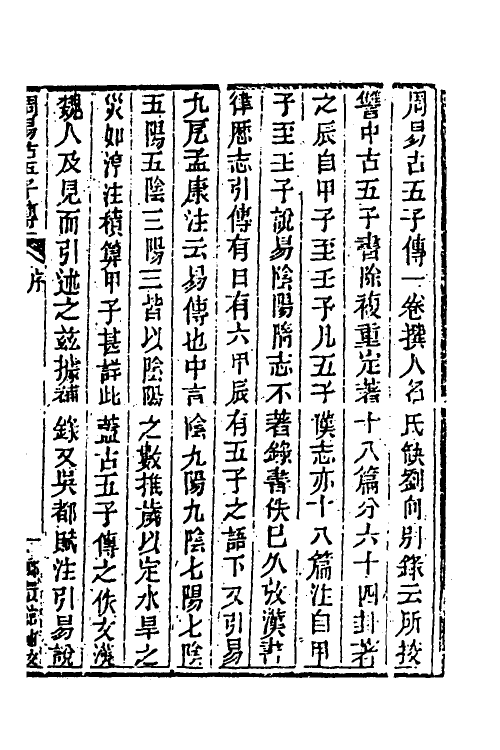 周易古五子傳一卷撰人名氏缺劉向别錄云所挍
讐中古五子書除複重定著十八篇分六十四卦著
之辰自甲子至壬子凡五子漢志亦十八篇注自甲
子至壬子說易陰陽隋志不著錄書佚已久攷漢書
律厯志引傳有日有六甲辰有五子之語下又引易
九戹孟康注云易傳也中言陰九陽九陰七陽七陰
五陽五陰三陽三皆以陰陽之數推歲以定水旱之
災如淳注積算甲子甚詳此蓋古五子傳之佚文漢
魏人及見而引述之茲據補錄又吳都賦注引易說
周易古五子傳 序 一